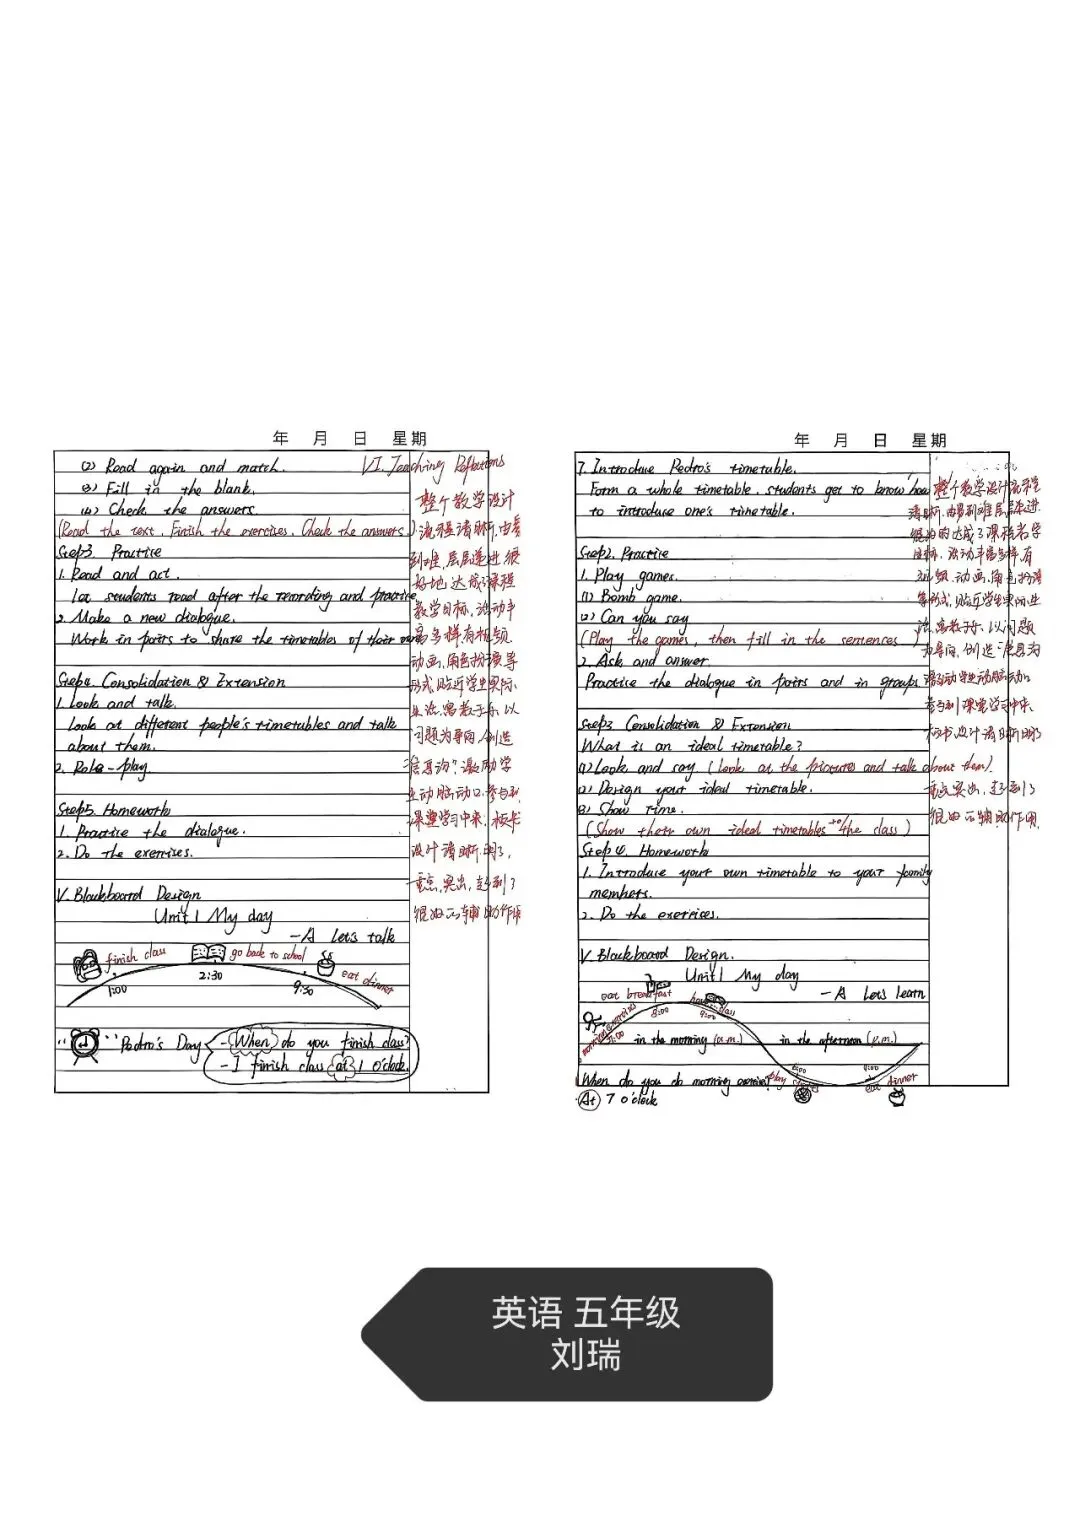 年 月 日 星期
(2) Read again and match.
(3) Fill in the blank.
(4) Check the answers.
(Read the text, Finish the exercises, Check the answers)
Step3. Practice
1. Read and act.
Let students read after the recording and practice.
2. Make a new dialogue.
Work in pairs to share the timetables of their own
Step4. Consolidation & Extension
1. Look and talk.
Look at different people's timetables and talk
about them.
2. Role-play
Step5. Homework
1. Practice the dialogue.
2. Do the exercises.
V. Blackboard Design
Unit 1 My day
-A Let's talk
finish class
go back to school
eat dinner
1:00
2:30
9:30
Pedro's Day
-When do you finish class?
-I finish class at 1 o'clock.
VI. Teaching Reflections
整个教学设计
流程清晰,由易
到难,层层递进,很
好地达成了课程
教学目标,活动丰
富多样,有视频
动画,角色扮演等
形式,贴近学生实际
生活,寓教于乐,以
问题为导向,创造
"信息沟",激励学
生动脑动口,参与到
课堂学习中来,板书
设计清晰明了,
重点突出,起到了
很好的辅助作用
年 月 日 星期
7. Introduce Pedro's timetable.
Form a whole timetable, students get to know how
to introduce one's timetable.
Step2. Practice
1. Play games.
(1) Bomb game.
(2) Can you say
(Play the games, then fill in the sentences)
2. Ask and answer.
Practice the dialogue in pairs and in groups.
Step3 Consolidation & Extension
What is an ideal timetable?
(1) Look and say (Look at the pictures and talk about them).
(2) Design your ideal timetable.
(3) Show Time.
(Show their own ideal timetables to the class)
Step 4. Homework
1. Introduce your own timetable to your family
members.
2. Do the exercises.
V. Blackboard Design.
Unit 1 My day
-A Let's learn
eat breakfast
have class
morning exercises
7:00
8:00
9:00
in the morning (a.m.)
in the afternoon (p.m.)
play sports
eat dinner
When do you do morning exercises?
At 7 o'clock
整个教学设计流程
清晰,由易到难,层层递进,
很好的达成了课程教学
目标,活动丰富多样,有
视频,动画,角色扮演
等形式,贴近学生实际生
活,寓教于乐,以问题
为导向,创造"信息沟"
激励学生动脑动口
参与到课堂学习中来,
板书设计清晰明了
重点突出,起到了
很好的辅助作用.
英语 五年级
刘瑞